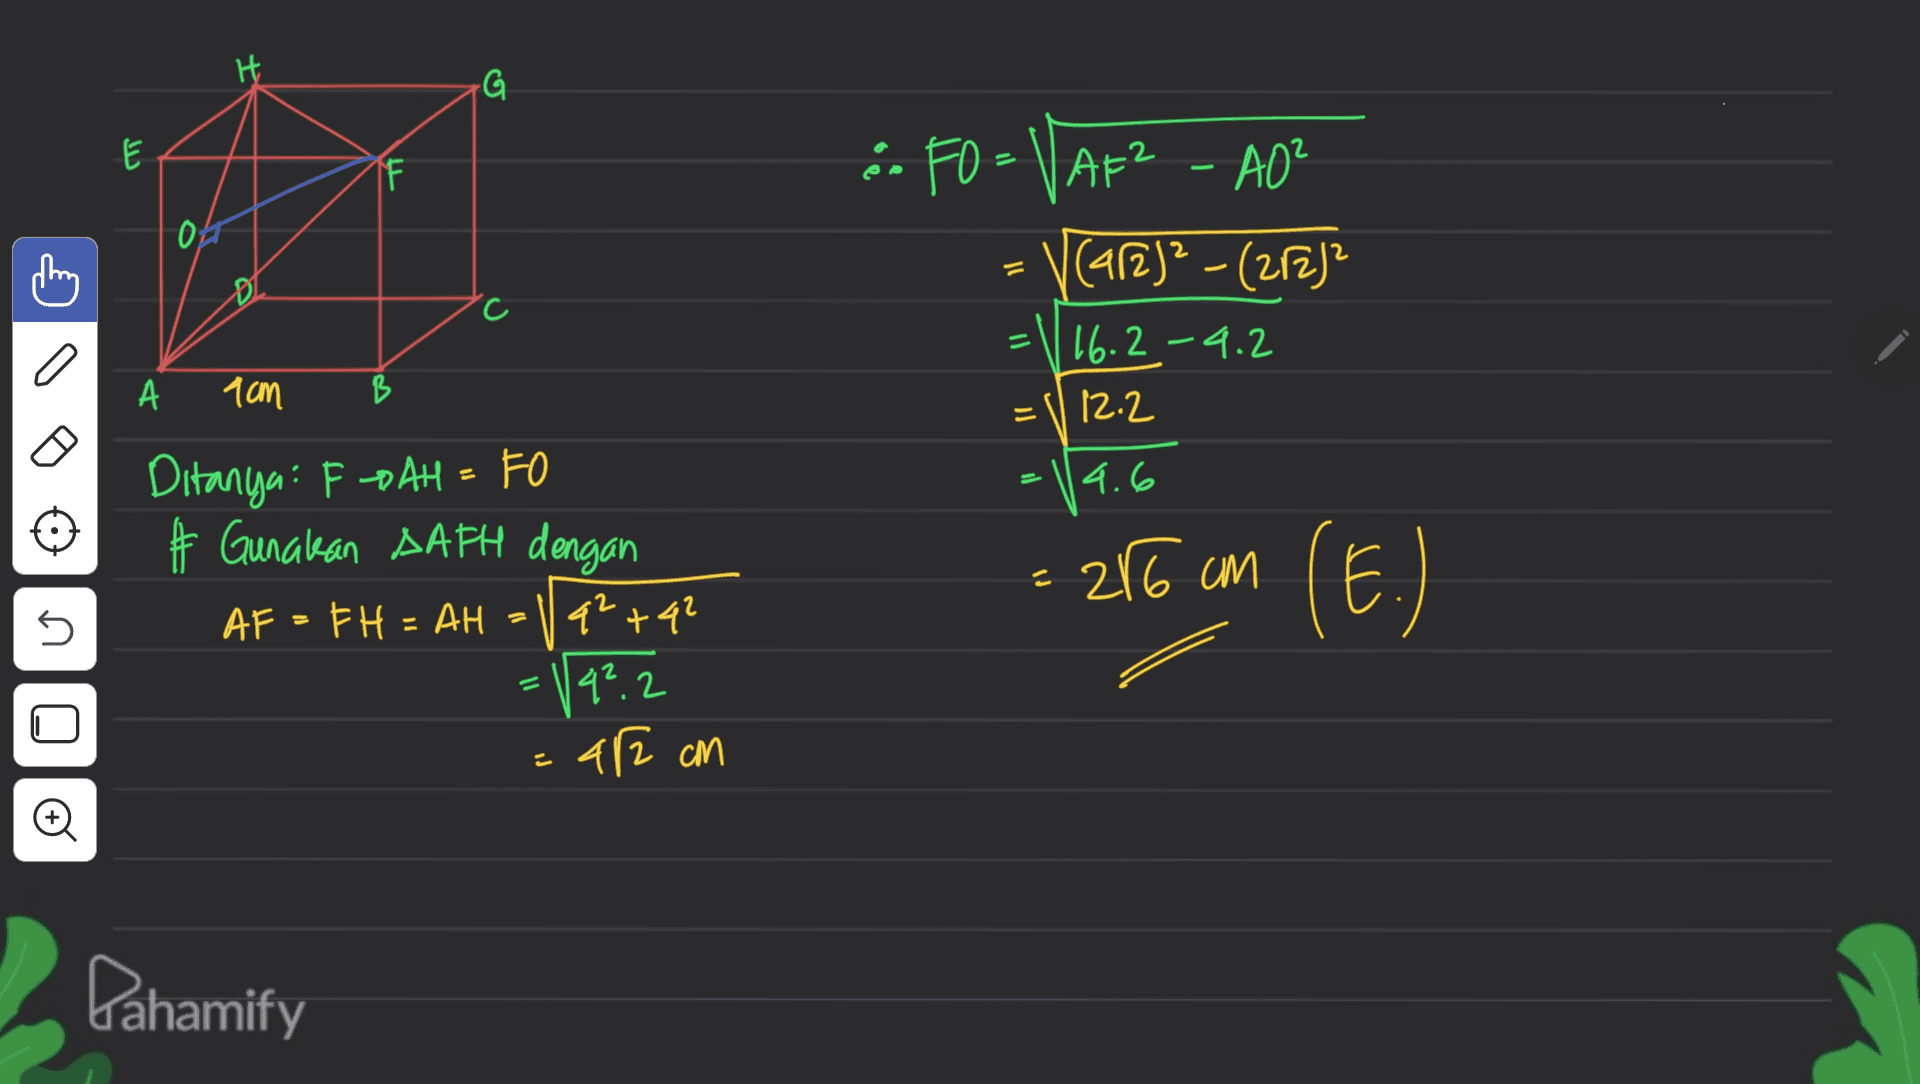 H
G
E
F
O
D
C
A 4cm B
Ditanya: F → AH = FO
# Gunakan ΔAFH dengan
AF = FH = AH = √4² + 4²
= √4².2
= 4√2 cm
∴ FO = √AF² - AO²
= √(4√2)² - (2√2)²
= √16.2 - 4.2
= √12.2
= √4.6
= 2√6 cm (E.)
Pahamify